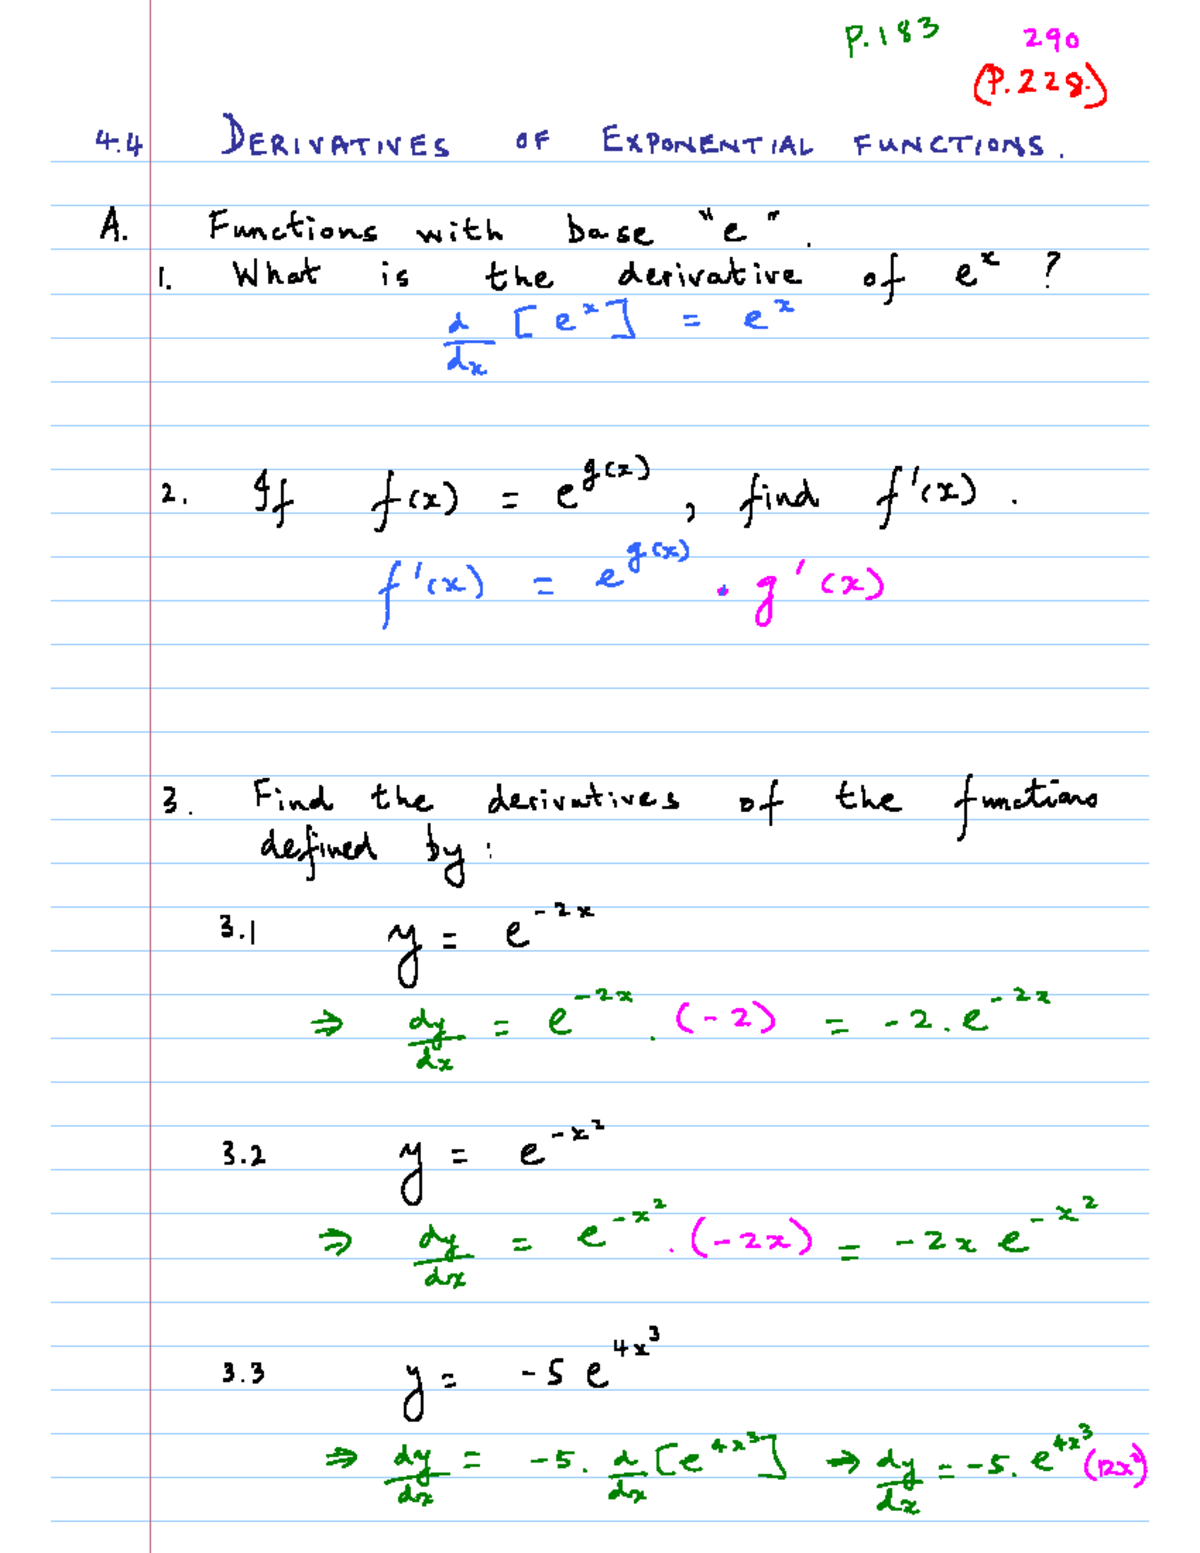 P.183 290
(P.228.)
4.4 DERIVATIVES OF EXPONENTIAL FUNCTIONS.
A. Functions with base "e".
1. What is the derivative of e^x ?
d/dx [e^x] = e^x
2. If f(x) = e^g(x), find f'(x).
f'(x) = e^g(x) · g'(x)
3. Find the derivatives of the functions
defined by:
3.1 y = e^-2x
⇒ dy/dx = e^-2x . (-2) = -2.e^-2x
3.2 y = e^-x²
⇒ dy/dx = e^-x² . (-2x) = -2x e^-x²
3.3 y = -5 e^4x³
⇒ dy/dx = -5. d/dx [e^4x³] ⇒ dy/dx = -5. e^4x³ (12x²)